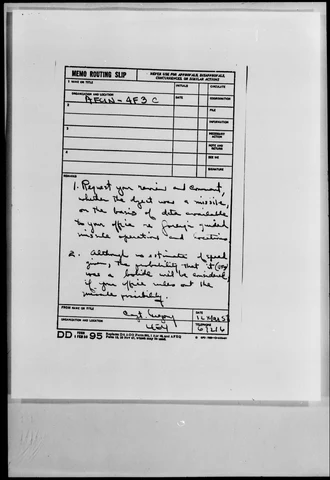 MEMO ROUTING SLIP
NEVER USE FOR APPROVALS, DISAPPROVALS, CONCURRENCES, OR SIMILAR ACTIONS
1 NAME OR TITLE
INITIALS
CIRCULATE
ORGANIZATION AND LOCATION
DATE
COORDINATION
2
FILE
INFORMATION
3
NECESSARY ACTION
NOTE AND RETURN
4
SEE ME
SIGNATURE
REMARKS
1. Request your review and comment,
whether the object was a missile,
on the basis of data available
to your office re foreign guided
missile operations and
2. Although no estimate of speed
given, the probability that it
was a bolide will be considered,
if your office rules out the
missile possibility.
FROM NAME OR TITLE
Capt.
DATE
ORGANIZATION AND LOCATION
TELEPHONE
DD FORM 1 FEB 50 95